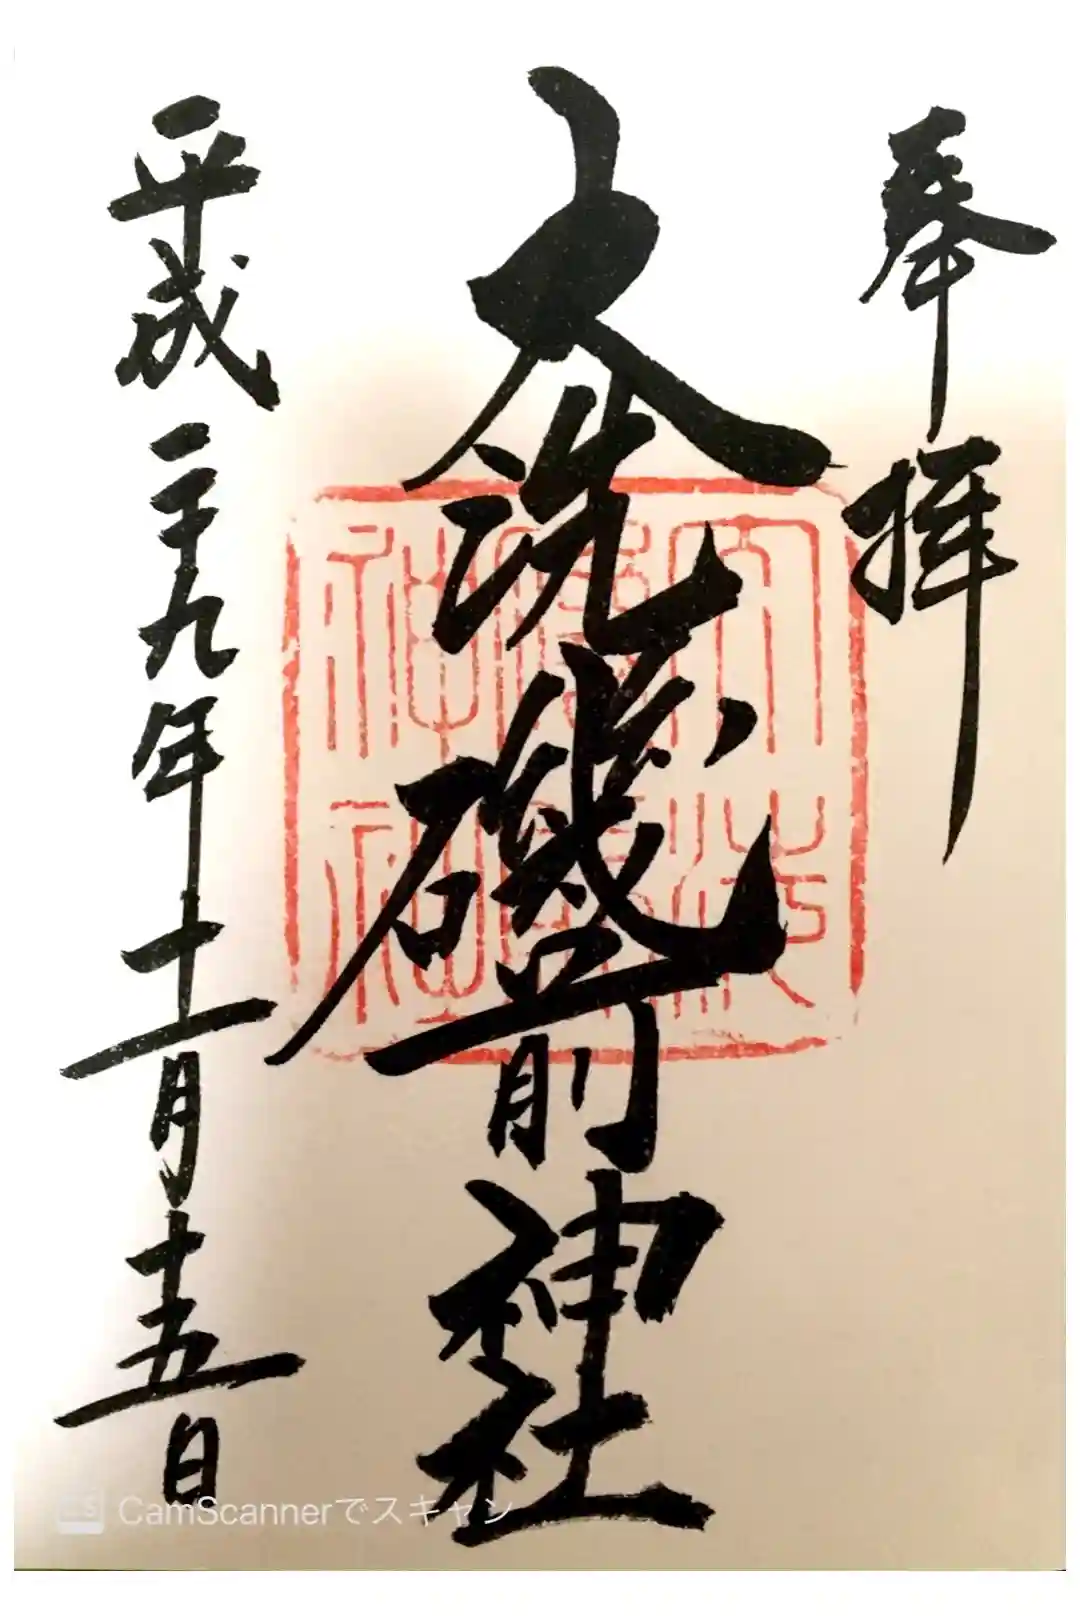 奉拝
大洗磯前神社
平成二十九年十一月十五日
CamScannerでスキャン